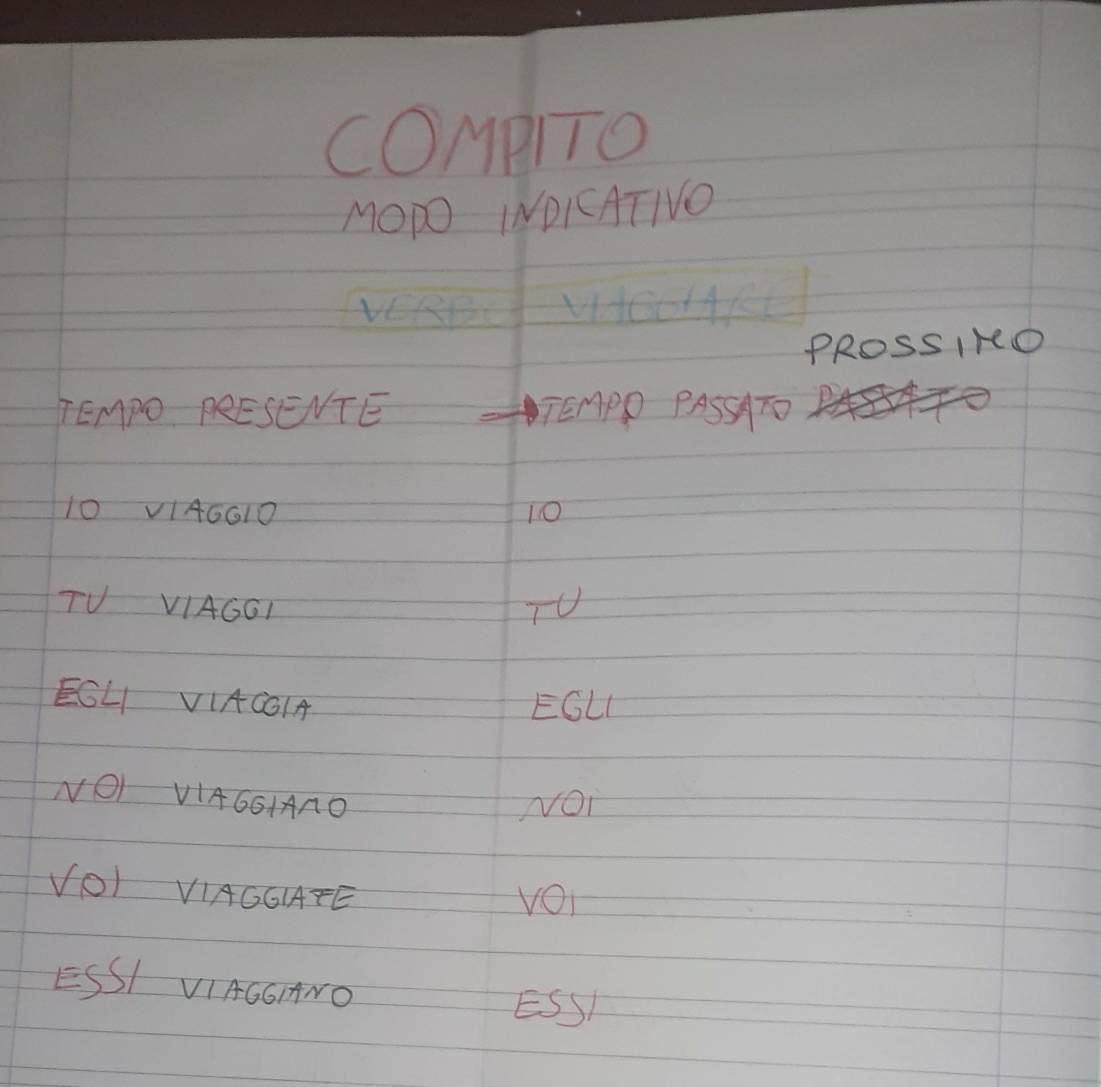 COMPITO
MODO INDICATIVO
VERBO VIAGGIARE
PROSSIMO
TEMPO PRESENTE →TEMPO PASSATO PASSATO
IO VIAGGIO IO
TU VIAGGI TU
EGLI VIAGGIA EGLI
NOI VIAGGIAMO NOI
VOI VIAGGIATE VOI
ESSI VIAGGIANO ESSI